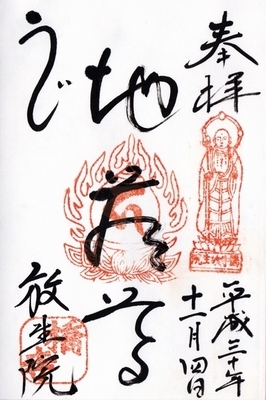 奉拝
平成三十年
十一月四日
地蔵尊
うじ
放生院